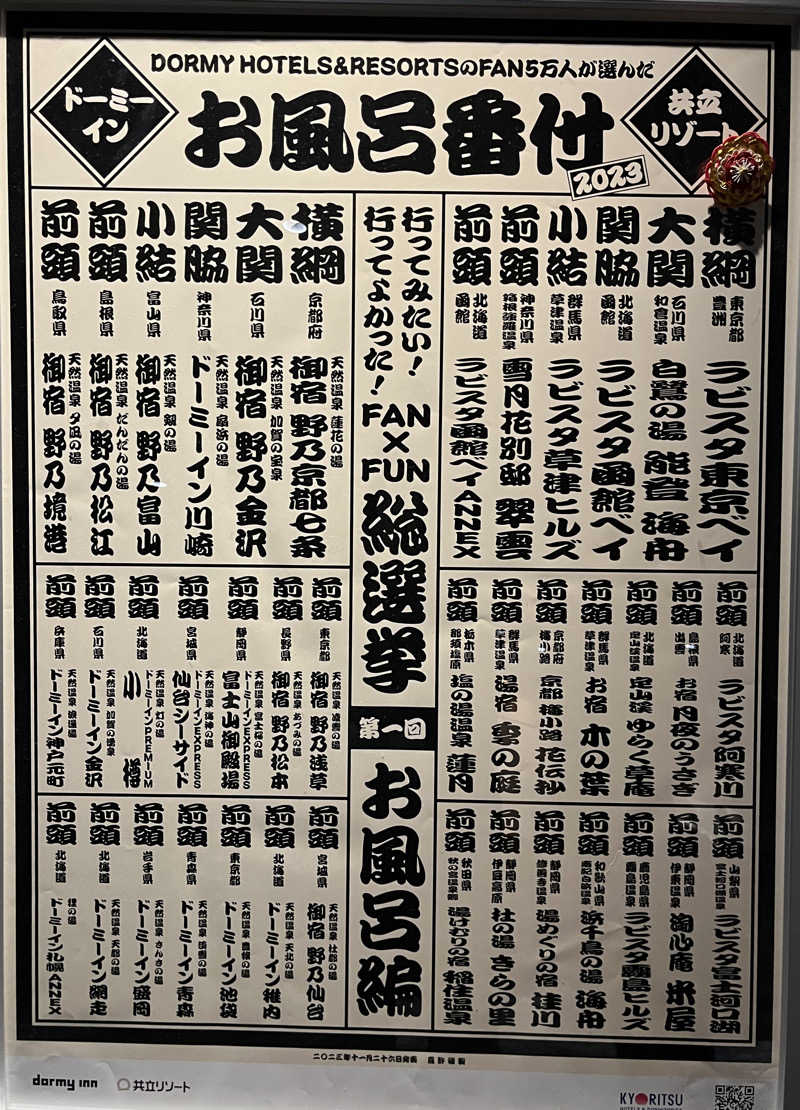 ドーミー
イン
DORMY HOTELS&RESORTSのFAN5万人が選んだ
お風呂番付
2023
共立
リゾート
横綱 東京都 豊洲 ラビスタ東京ベイ
大関 石川県 和倉温泉 白鷺の湯 能登 海舟
関脇 北海道 函館 ラビスタ函館ベイ
小結 群馬県 草津温泉 ラビスタ草津ヒルズ
前頭 神奈川県 箱根強羅温泉 雪月花別邸 翠雲
前頭 北海道 函館 ラビスタ函館ベイANNEX
前頭 北海道 阿寒 ラビスタ阿寒川
前頭 島根県 出雲 お宿 月夜のうさぎ
前頭 北海道 定山渓温泉 定山渓 ゆらく草庵
前頭 群馬県 草津温泉 お宿 木の葉
前頭 京都府 梅小路 京都 梅小路 花伝抄
前頭 群馬県 草津温泉 湯宿 季の庭
前頭 栃木県 那須塩原 塩の湯温泉 蓮月
前頭 山梨県 富士河口湖温泉 ラビスタ富士河口湖
前頭 静岡県 伊東温泉 淘心庵 米屋
前頭 鹿児島県 霧島温泉 ラビスタ霧島ヒルズ
前頭 和歌山県 南紀白浜温泉 浜千鳥の湯 海舟
前頭 静岡県 修善寺温泉 湯めぐりの宿 桂川
前頭 静岡県 伊豆高原 杜の湯 きらの里
前頭 秋田県 秋の宮温泉郷 湯けむりの宿 稲住温泉
行ってみたい!
行ってよかった!
FAN
×
FUN
総選挙
第一回
お風呂編
横綱 京都府 天然温泉 蓮花の湯 御宿 野乃京都七条
大関 石川県 天然温泉 加賀の宝泉 御宿 野乃金沢
関脇 神奈川県 天然温泉 扇浜の湯 ドーミーイン川崎
小結 富山県 天然温泉 剱の湯 御宿 野乃富山
前頭 島根県 天然温泉 だんだんの湯 御宿 野乃松江
前頭 鳥取県 天然温泉 夕凪の湯 御宿 野乃境港
前頭 東京都 天然温泉 凌雲の湯 御宿 野乃浅草
前頭 長野県 天然温泉 あづみの湯 御宿 野乃松本
前頭 静岡県 天然温泉 富士桜の湯 ドーミーインEXPRESS 富士山御殿場
前頭 宮城県 天然温泉 海神の湯 ドーミーインEXPRESS 仙台シーサイド
前頭 北海道 天然温泉 灯の湯 ドーミーインPREMIUM 小樽
前頭 石川県 天然温泉 加賀の湧泉 ドーミーイン金沢
前頭 兵庫県 天然温泉 浪漫湯 ドーミーイン神戸元町
前頭 宮城県 天然温泉 杜都の湯 御宿 野乃仙台
前頭 北海道 天然温泉 天北の湯 ドーミーイン稚内
前頭 東京都 天然温泉 豊穣の湯 ドーミーイン池袋
前頭 青森県 天然温泉 淡雪の湯 ドーミーイン青森
前頭 岩手県 天然温泉 さんさの湯 ドーミーイン盛岡
前頭 北海道 天然温泉 天都の湯 ドーミーイン網走
前頭 北海道 狸の湯 ドーミーイン札幌ANNEX
二〇二三年十一月二十六日発表
dormy inn
共立リゾート
KYORITSU